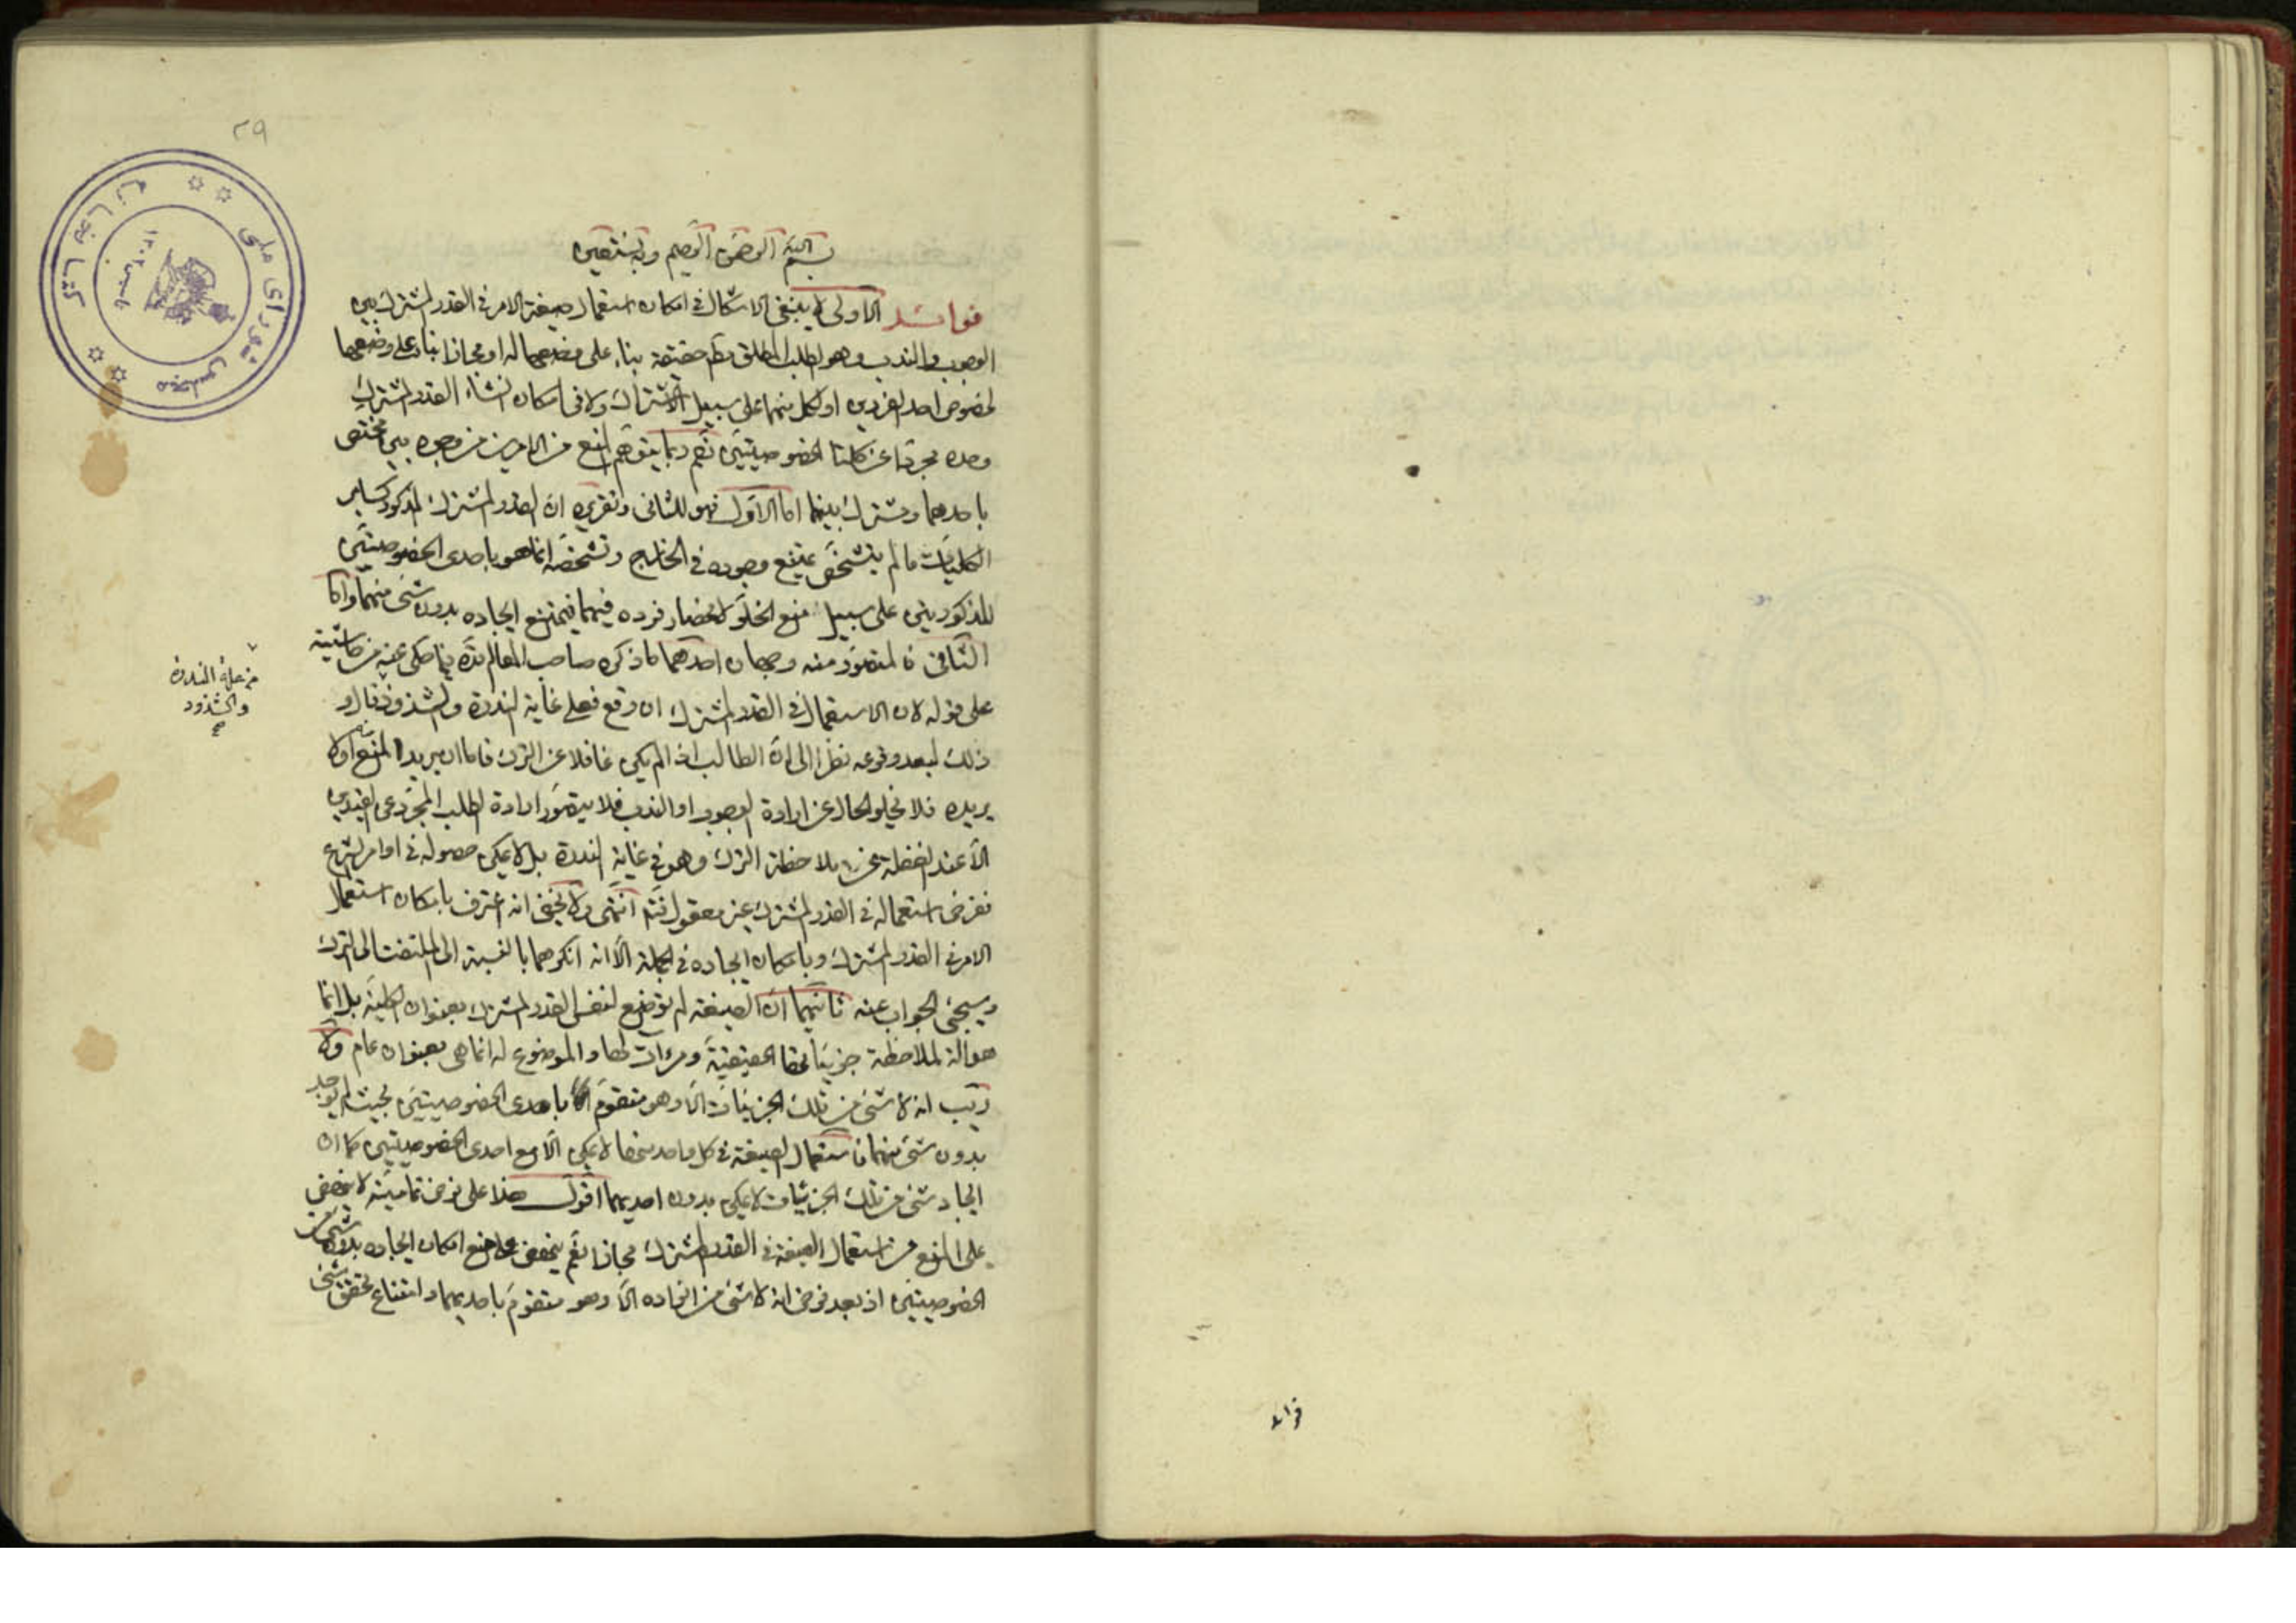 ٢٩
بسم الله الرحمن الرحيم وبه نستعين
فوائد الاولى لا ينبغى الاشكال فى امكان استعمال صيغة الامر فى القدر المشترك بين
الوجوب والندب وهو الطلب المطلق حقيقة بناء على وضعها له او مجازا بناء على وضعها
لخصوص احد الفردين او لكل منهما على سبيل الاشتراك ولا فى امكان انشاء القدر المشترك
وحده مجردا عن كلتا الخصوصيتين نعم ربما يتوهم المنع من الامرين من وجوه بين مختص
باحدهما ومشترك بينهما اما الاول فهو للثانى وتقريره ان القدر المشترك المذكور كساير
الكليات ما لم يتشخص يمتنع وجوده فى الخارج وتشخصه انما هو باحدى الخصوصيتين
المذكورتين على سبيل منع الخلو لانحصار فرده فيهما فيمتنع ايجاده بدون شئ منهما واما
الثانى فالمتصور منه وجهان احدهما ما ذكره صاحب المعالم قده فيما حكى عنه من حاشيته
على قوله لان الاستعمال فى القدر المشترك ان وقع فعلى غاية الندرة والشذوذ قال و
ذلك لبعد وقوعه نظرا الى ان الطالب اذا لم يكن غافلا عن الترك فاما ان يريد المنع او لا
يريده فلا يخلو الحال عن ارادة الوجوب او الندب فلا يتصور ارادة الطلب المجرد عن القيدين
الا عند الغفلة عن ملاحظة الترك وهو فى غاية الندرة بل لا يمكن حصوله فى اوامر الشرع
ففرض استعماله فى القدر المشترك غير معقول انتهى ولا يخفى انه اعترف بامكان استعمال
الامر فى القدر المشترك وبامكان ايجاده فى الجملة الا انه انكرهما بالنسبة الى الملتفت الى الترك
وسيجئ الجواب عنه ثانيهما ان الصيغة لم توضع لنفس القدر المشترك بعنوان الكلية بل انما
هو آلة لملاحظة جزئياتها الحقيقية ومرآت لها والموضوع له انما هى بعنوان عام ولا
ريب انه لا شئ من تلك الجزئيات الا وهو متقوم باحدى الخصوصيتين بحيث لم يوجد
بدون شئ منهما فاستعمال الصيغة فى كل واحد منها لا يمكن الا مع احدى الخصوصيتين كما ان
ايجاد شئ من تلك الجزئيات لا يمكن بدون احديهما اقول هذا على فرض تماميته لا ينهض
على المنع من استعمال الصيغة فى القدر المشترك مجازا نعم ينهض على منع امكان ايجاده بدون شئ من
الخصوصيتين اذ بعد فرض انه لا شئ من افراده الا وهو متقوم باحديهما وامتناع تحقق شئ
من جملة الندرة
والشذوذ
صح
كتابخانه
مجلس شوراى ملى
فوائد